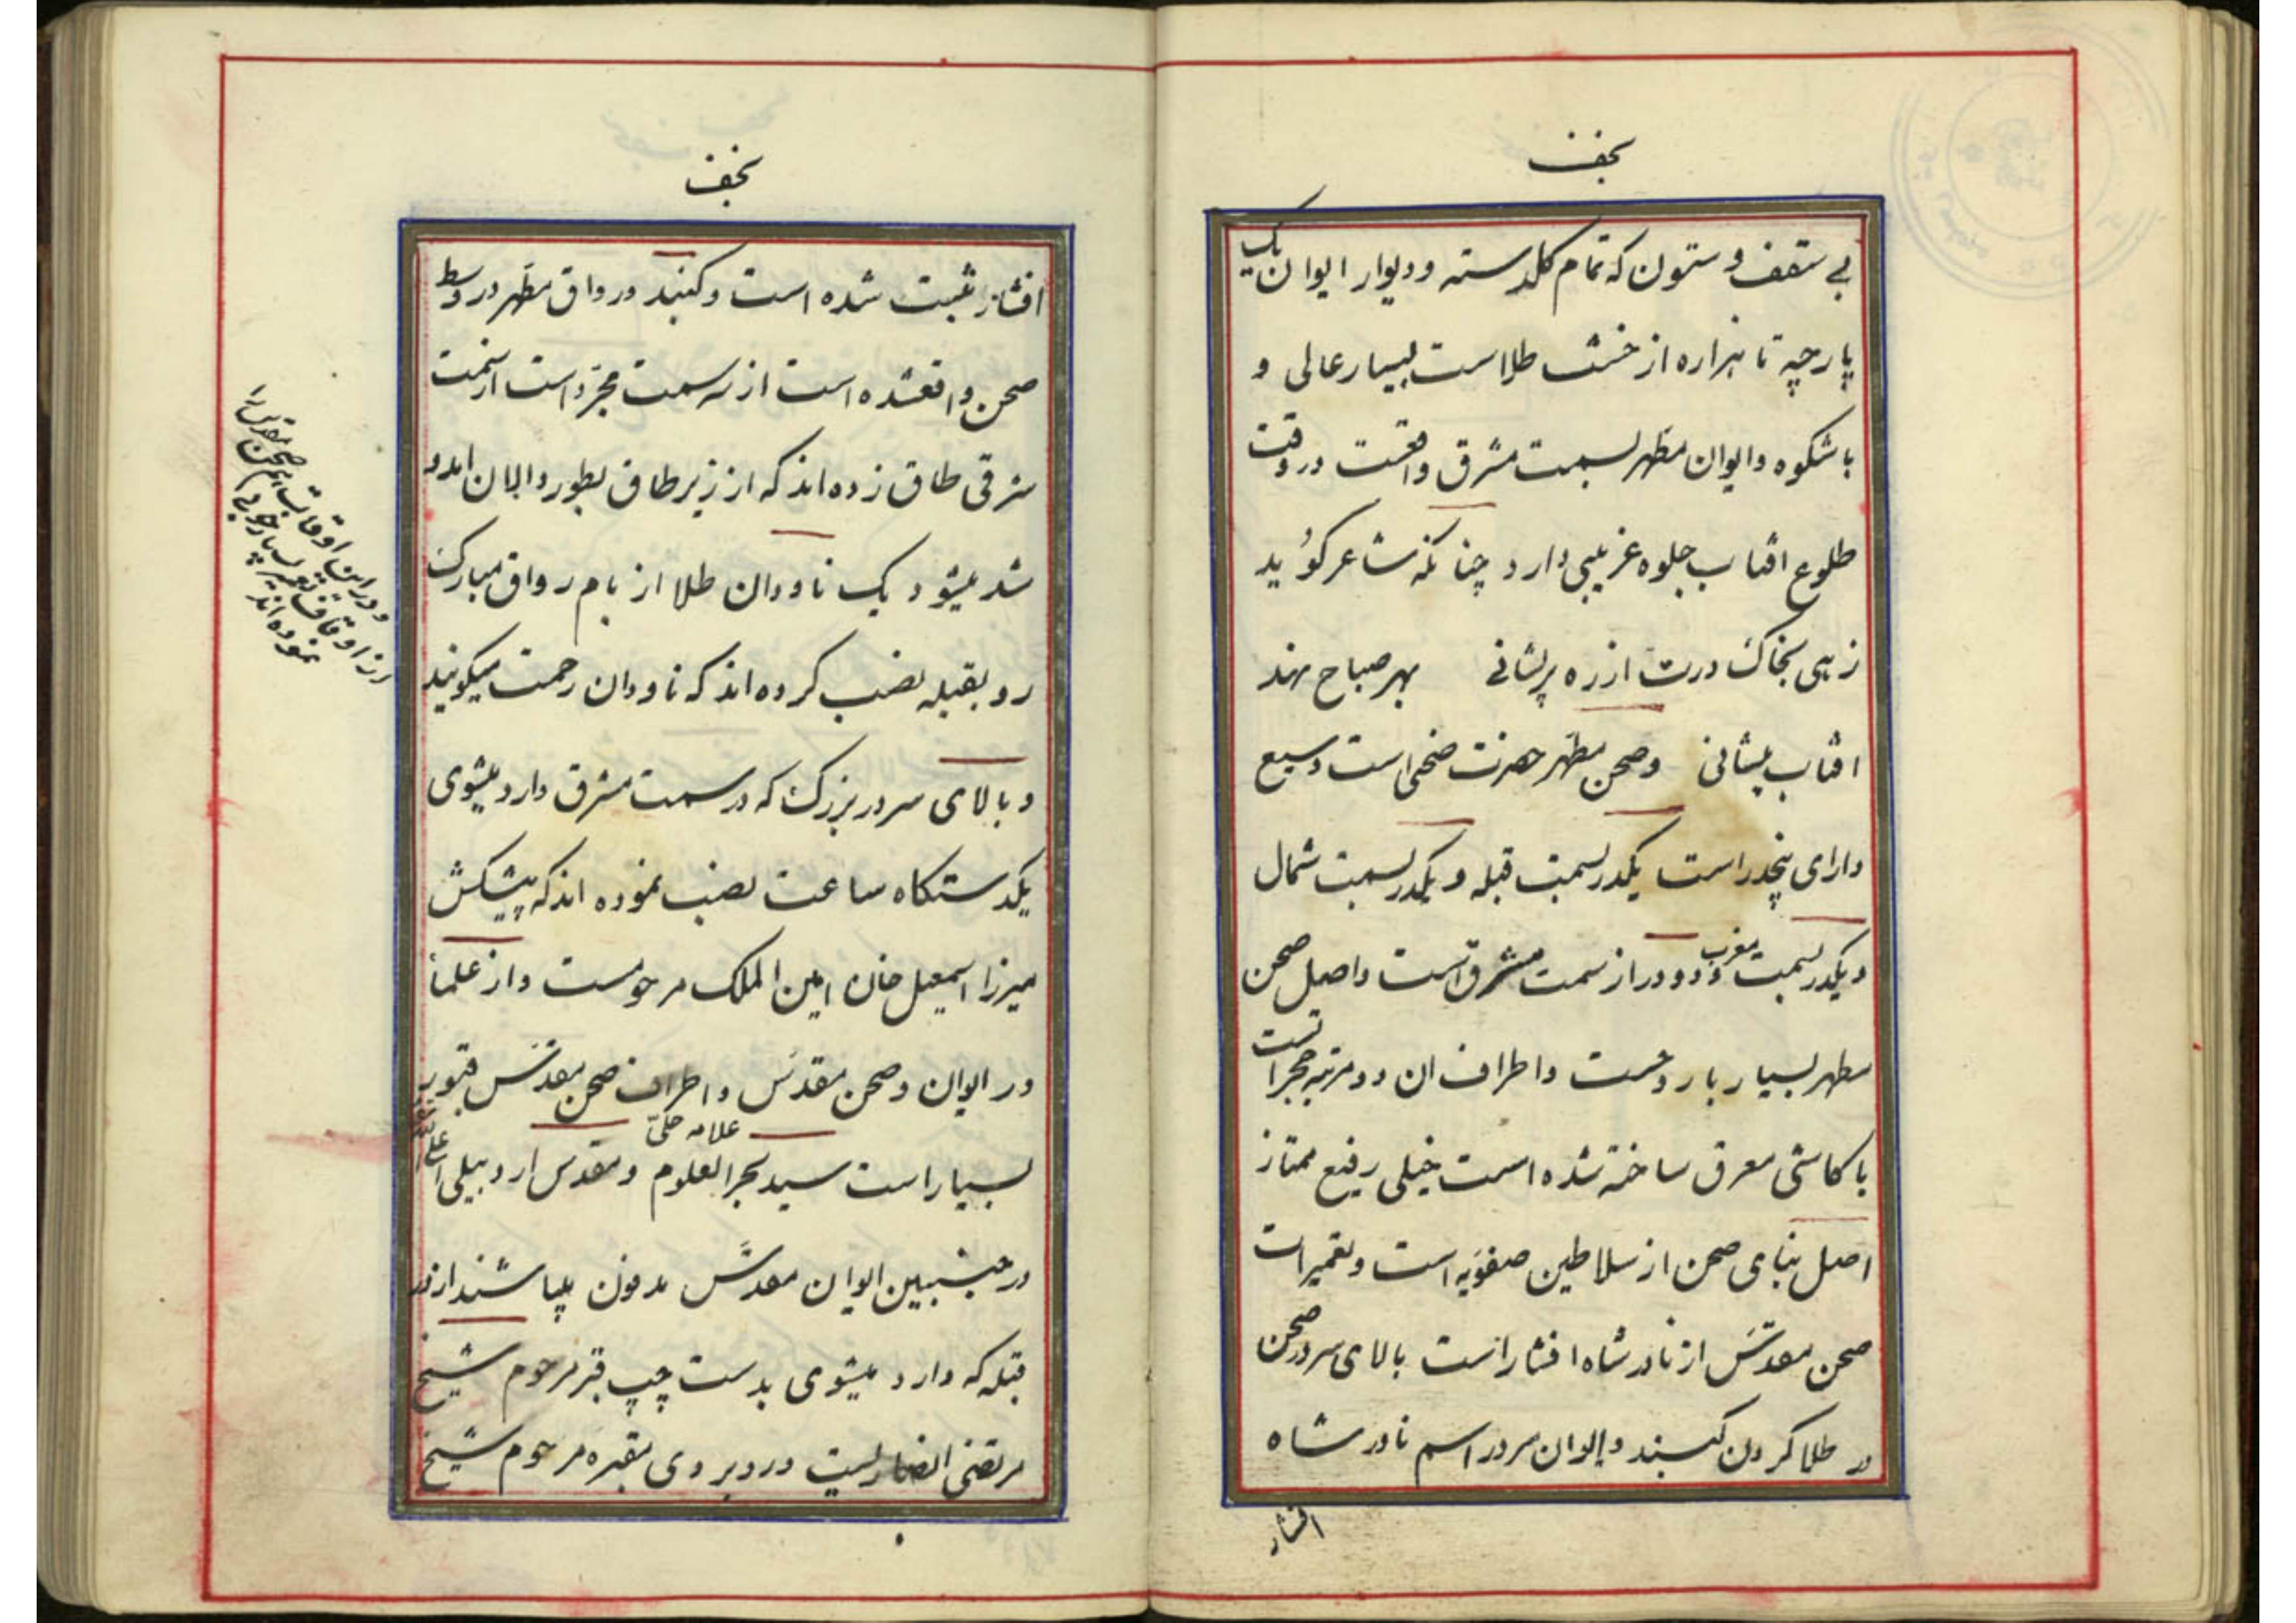 نجف
بی سقف و ستون که تمام کلدسته و دیوار ایوان یک
پارچه تا هزاره از خشت طلا است بسیار عالی و
باشکوه و ایوان مطهر بسمت مشرق واقعست در وقت
طلوع افتاب جلوه غریبی دارد چنانکه شاعر کوید
زهی بخاک درت از ره پریشانی بهر صباح نهد
افتاب پیشانی و صحن مطهر حضرت صحنی است وسیع
دارای پنجدر است یکدر بسمت قبله و یکدر بسمت شمال
و یکدر بسمت مغرب و دو در از سمت مشرق است و اصل صحن
مطهر بسیار با روحست و اطراف ان دو مرتبه حجراتست
با کاشی معرق ساخته شده است خیلی رفیع ممتاز
اصل بنای صحن از سلاطین صفویه است و تعمیرات
صحن مقدس از نادرشاه افشار است بالای سردر صحن
در طلا کردن کنبد و ایوان سردر اسم نادر شاه
افشار
نجف
افشار ثبت شده است و کنبد و رواق مطهر در وسط
صحن واقعشده است از سه سمت مجزا است از سمت
شرقی طاق زده اند که از زیر طاق بطور دالان امد و
شد میشود یک ناودان طلا از بام رواق مبارک
رو بقبله نصب کرده اند که ناودان رحمت میکویند
و بالای سردر بزرک که در سمت مشرق وارد میشوی
یکدستکاه ساعت نصب نموده اند که پیشکش
میرزا اسمعیل خان امین الملک مرحومست و از علما
در ایوان و صحن مقدس و اطراف صحن مقدس قبور
بسیار است سید بحرالعلوم علامه حلی و مقدس اردبیلی
در جنبین ایوان مقدس مدفون میباشند از در
قبله که وارد میشوی بدست چپ قبر مرحوم شیخ
مرتضی انصاریست در روبروی مقبره مرحوم شیخ
و در این اوقات صحن مقدس را
از اوقاف تعمیر بسیار خوبی
نموده اند